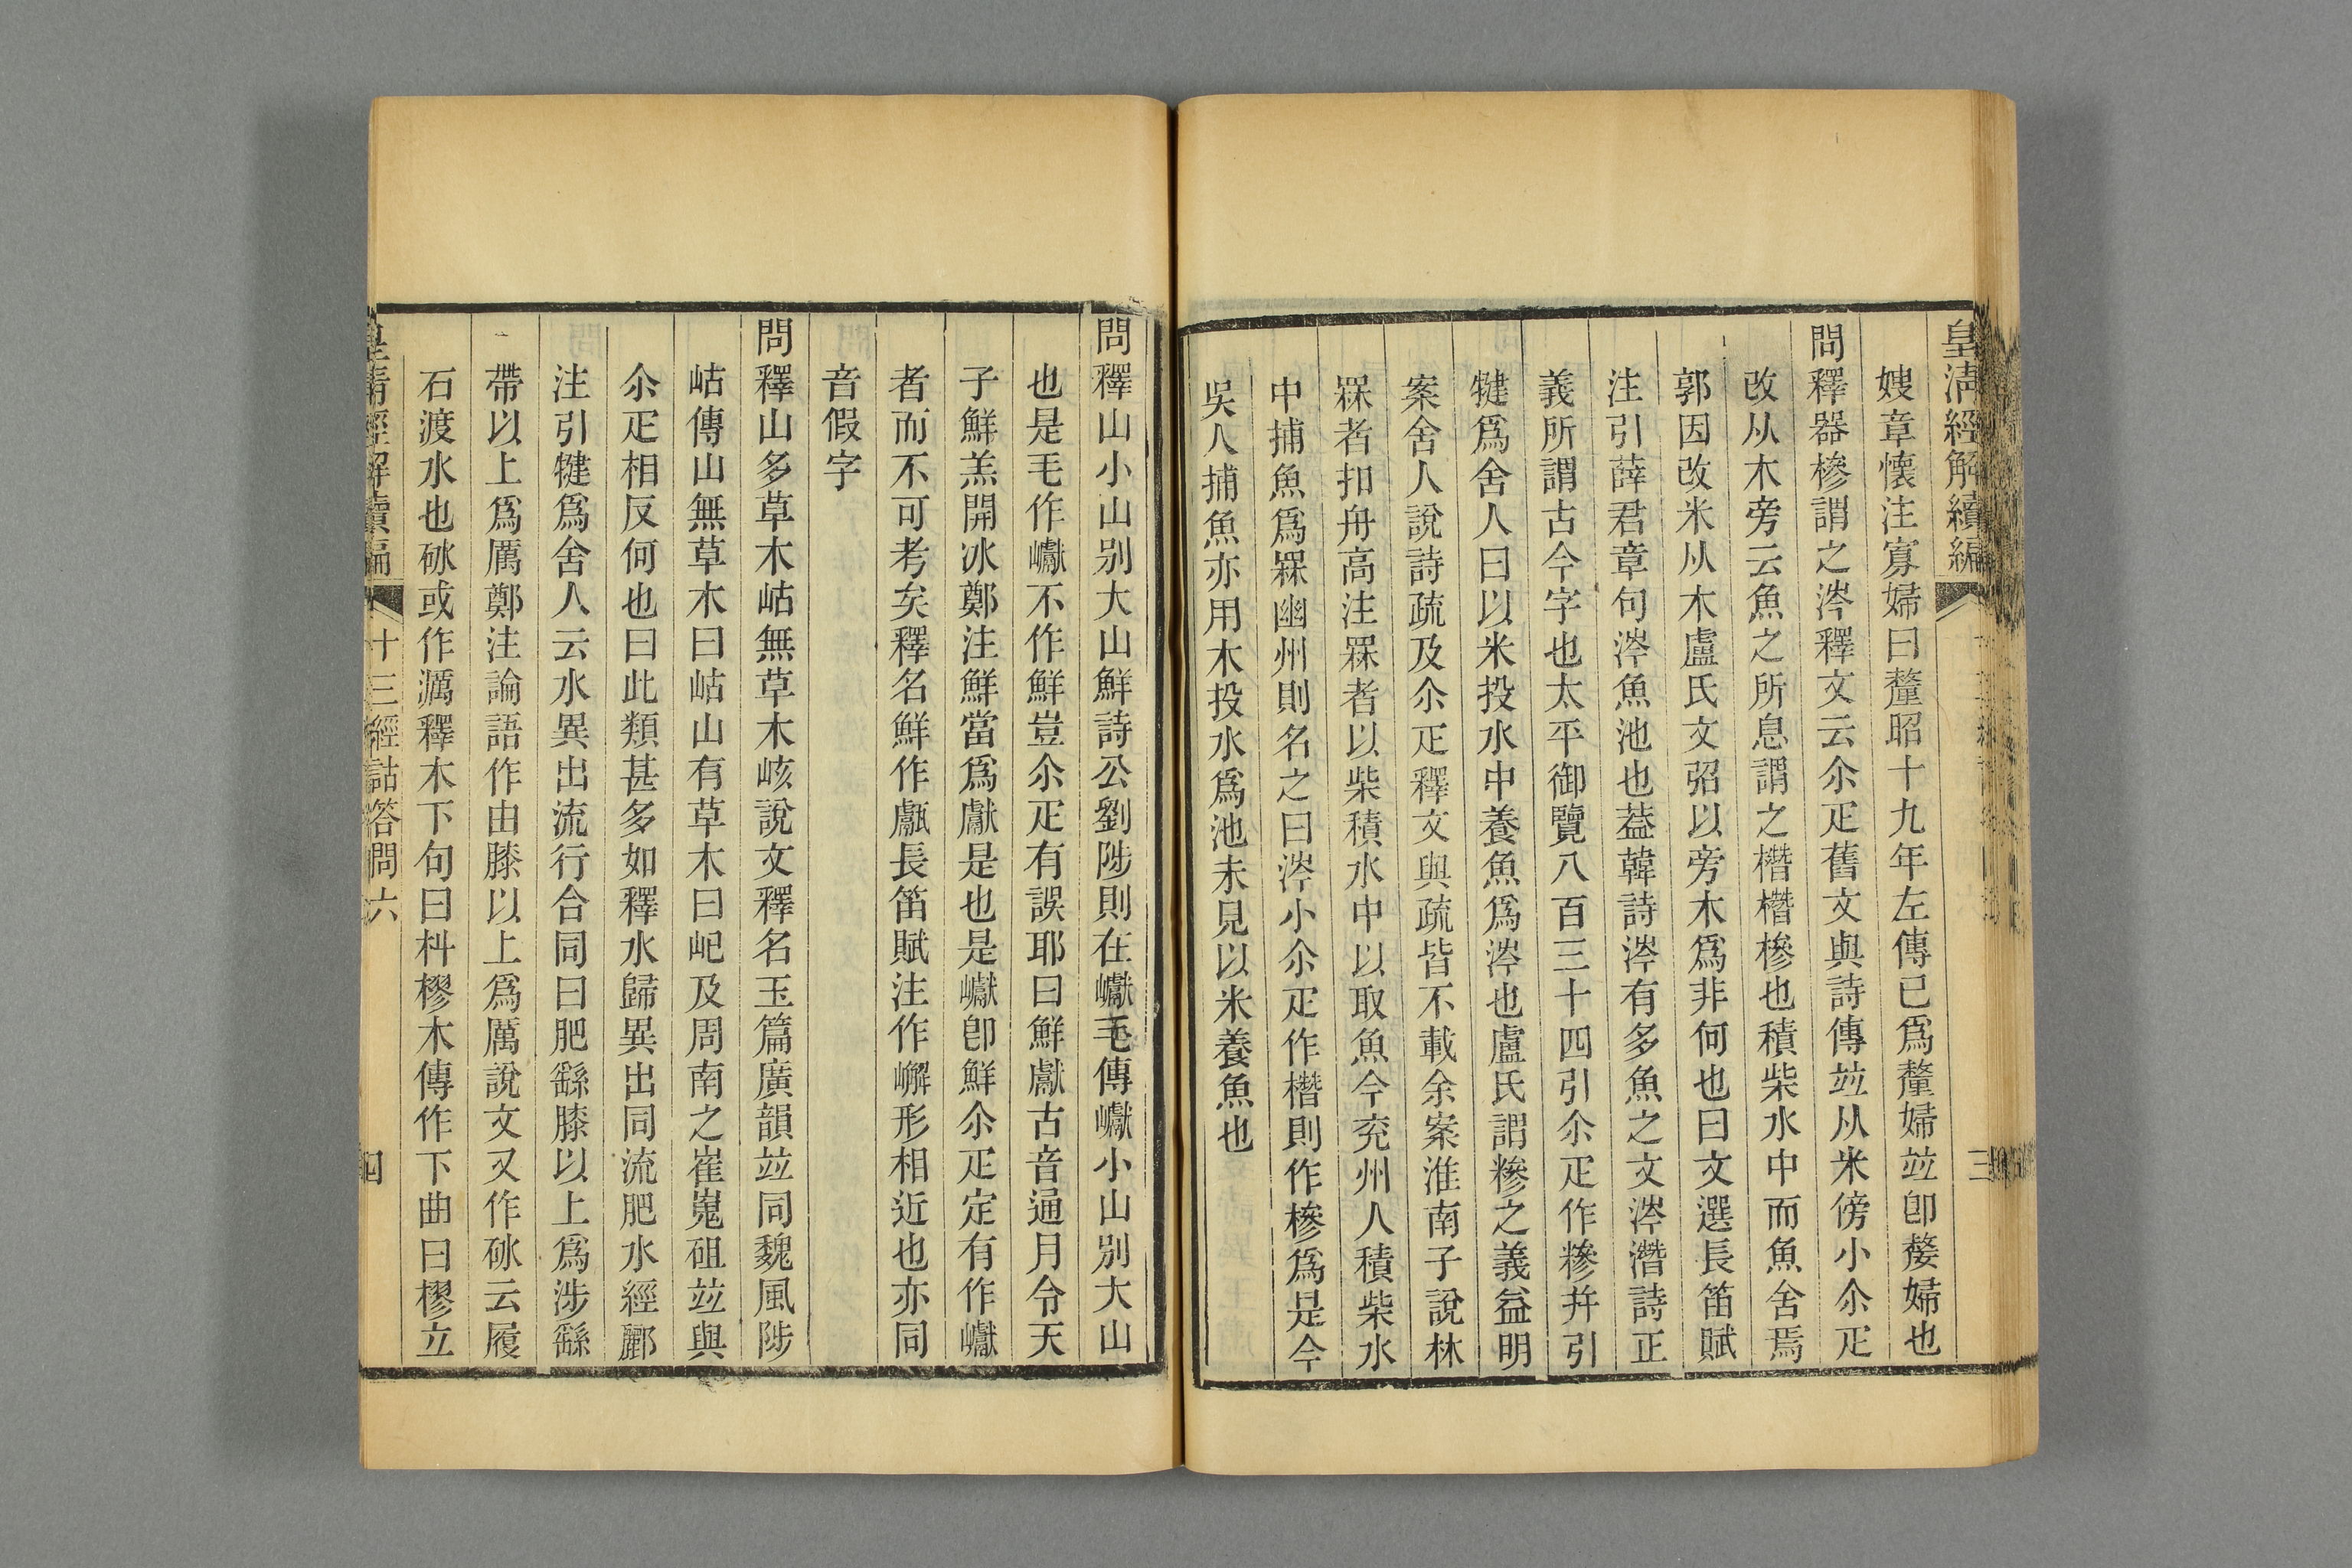 皇清經解續編
三
嫂章懷注寡婦曰釐昭十九年左傳已爲釐婦竝卽嫠婦也
問釋器槮謂之涔釋文云尒疋舊文與詩傳竝从米傍小尒疋
改从木旁云魚之所息謂之橬橬槮也積柴水中而魚舍焉
郭因改米从木盧氏文弨以旁木爲非何也曰文選長笛賦
注引薛君章句涔魚池也葢韓詩涔有多魚之文涔潛詩正
義所謂古今字也太平御覽八百三十四引尒疋作糝幷引
犍爲舍人曰以米投水中養魚爲涔也盧氏謂糝之義益明
案舍人說詩疏及尒疋釋文與疏皆不載余案淮南子說林
罧者扣舟高注罧者以柴積水中以取魚今兖州人積柴水
中捕魚爲罧幽州則名之曰涔小尒疋作橬則作槮爲是今
吳人捕魚亦用木投水爲池未見以米養魚也
問釋山小山别大山鮮詩公劉陟則在巘毛傳巘小山别大山
也是毛作巘不作鮮豈尒疋有誤耶曰鮮獻古音通月令天
子鮮羔開冰鄭注鮮當爲獻是也是巘卽鮮尒疋定有作巘
者而不可考矣釋名鮮作甗長笛賦注作嶰形相近也亦同
音假字
問釋山多草木岵無草木峐說文釋名玉篇廣韻竝同魏風陟
岵傳山無草木曰岵山有草木曰屺及周南之崔嵬砠竝與
尒疋相反何也曰此類甚多如釋水歸異出同流肥水經酈
注引犍爲舍人云水異出流行合同曰肥繇膝以上爲涉繇
帶以上爲厲鄭注論語作由膝以上爲厲說文又作砅云履
石渡水也砅或作濿釋木下句曰朻樛木傳作下曲曰樛立
皇清經解續編
十三經詁答問六
四